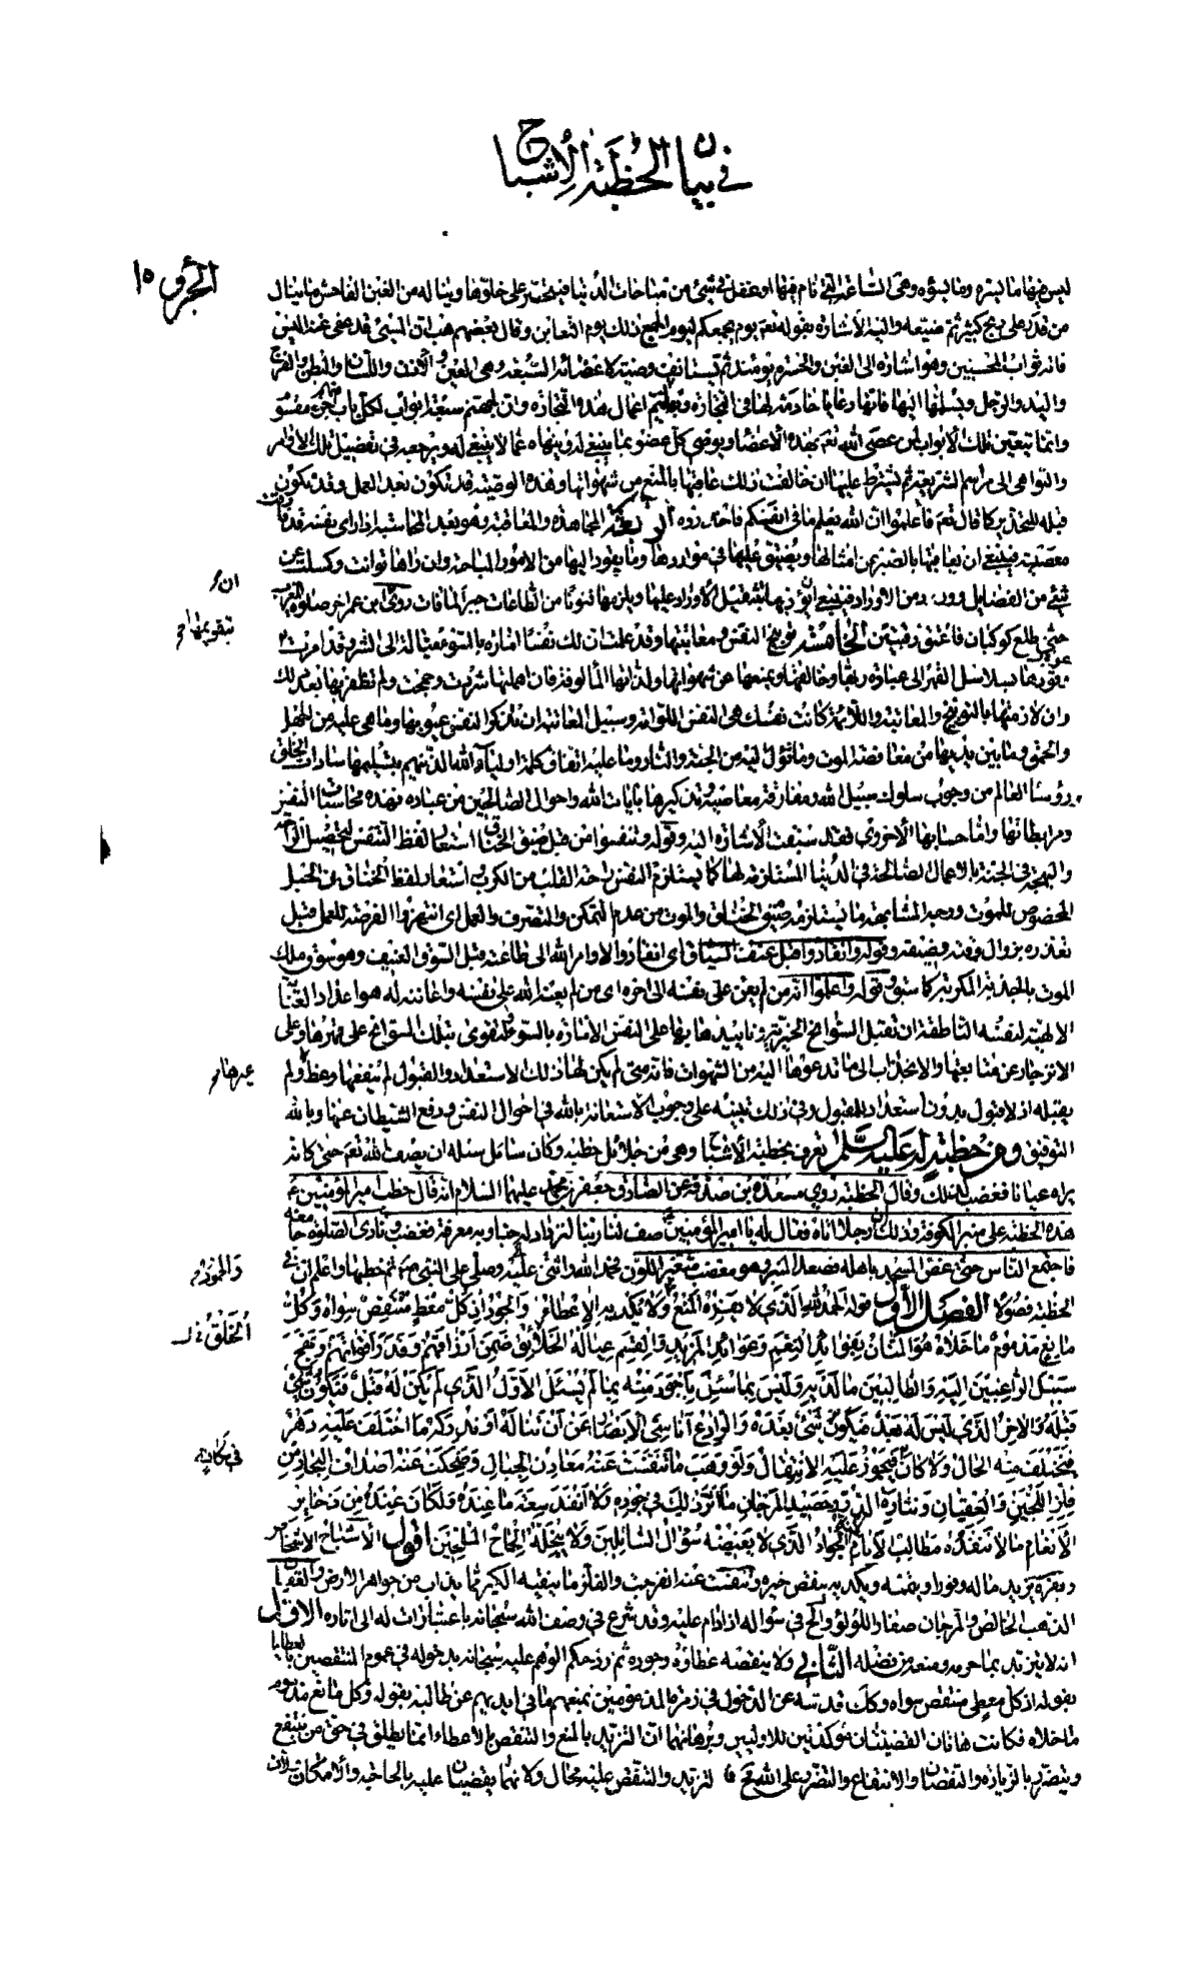 في بيان الخطبة الأشباح
الجزؤ ١٥
ليس فيها ما يسره وما يسؤه وهي الساعة التي نام فيها او غفل في شئ من مباحات الدنيا فيتحسر على خلوها ويناله من الغبن الفاحش ما ينال
من قدر على ربح كثير ثم ضيعه واليه الأشارة بقوله تعم يوم يجمعكم ليوم الجمع ذلك يوم التغابن وقال بعضهم هب ان المسئ قد عفي عنه اليس
فاته ثواب المحسنين وهو اشارة الى الغبن والحسرة يومئذ ثم يستانف وصيته لاعضائه السبعة وهي العين والاذن واللسان والبطن والفرج
واليد والرجل ويسلمها اليها فانها رعايا خادمة لها في التجارة وبها يتم اعمال هذه التجارة وان لجهنم سبعة ابواب لكل باب منهم جزء مقسوم
وانما يتعين تلك الأبواب لمن عصى الله تعم بهذه الأعضاء ويوصي كل عضو بما ينبغي له وينهاه عما لا ينبغي له ويرجعه في تفصيل تلك الاوامر
والنواهي الى مراسم الشريعة ثم يشترط عليها ان خالفت ذلك عاقبها بالمنع من شهواتها وهذه الوصية قد تكون بعد العمل وقد تكون
قبله للتحذير كما قال تعم فاعلموا ان الله يعلم ما في انفسكم فاحذروه الرابعة المجاهدة والمعاقبة وهو بعد المحاسبة اذا راى نفسه قد قارفت
معصية فينبغي ان يعاقبها بالصبر عن امثالها ويضيق عليها في مواردها وما يقود اليها من الامور المباحة وان راها توانت وكسلت عن
شئ من الفضايل وورد من الاوراد فينبغي ان يؤدبها بتثقيل الأوراد عليها ويلزمها فنونا من الطاعات جبرا لما فات روى ان ابن عمر اخر صلوة المغرب
حتى طلع كوكبان فاعتق رقبتين الخامسة توبيخ النفس ومعاتبتها وقد علمت ان لك نفسا امارة بالسوء ميالة الى الشر وقد امرت
بقودها بسلاسل القهر الى عبادة ربها وخالقها وبمنعها عن شهواتها ولذاتها المألوفة فان اهملتها شردت وجمحت ولم تظفر بها بعد ذلك
وان لازمتها بالتوبيخ والمعاتبة واللائمة كانت نفسك هي النفس اللوامة وسبيل المعاتبة ان تذكر النفس عيوبها وما هي عليه من الجهل
والحمق وما بين يديها من مغافصة الموت وما تؤل اليه من الجنة والنار وما عليه اتفاق كلمة اولياء الله الذين هم بتسليمها سادات الخلق
ورؤساء العالم من وجوب سلوك سبيل الله ومفارقة معاصيه وتذكيرها بايات الله واحوال الصالحين من عباده فهذه محاسبات النفس
ومرابطاتها واما حسابها الأخروي فقد سبقت الأشارة اليه وقوله وتنفسوا من قبل ضيق الخناق استعار لفظ التنفس لتحصيل الراحة
والبهجة في الجنة بالاعمال الصالحة في الدنيا المستلزمة لها كما يستلزم النفس راحة القلب من الكرب استعار لفظ الخناق من الحبل
المخصوص للموت ووجه المشابهة ما يستلزمه ضيق الخناق والموت من عدم التمكن والتصرف والعمل اي انتهزوا الفرصة للعمل قبل
تعذره بزوال وقته وضيقه وقوله وانقادوا قبل عنف السياق اي انقادوا الاوامر الله الى طاعته قبل السوق العنيف وهو سوق ملك
الموت بالجذبة المكربة كما سبق وقوله واعلموا انه من لم يعن على نفسه الى اخره اي من لم يعنه الله على نفسه واعانته له هو اعداد العناية
الالهية لنفسه الناطقة ان تقبل السوانح الخيرية وتاييدها بها على النفس الامارة بالسوء لتقوى بتلك السوانح على قهرها وعلى
الانزجار عن متابعتها والانجذاب الى ما تدعوها اليه من الشهوات فانه متى لم يكن لها ذلك الاستعداد والقبول لم ينفعها وعظ ولم
يقبله اذ لا قبول بدون استعداد للقبول وفي ذلك تنبيه على وجوب الاستعانة بالله في احوال النفس ودفع الشيطان عنها وبالله
التوفيق ومن خطبة له عليه السلم تعرف بخطبة الأشباح وهي من جلائل خطبه وكان سائل سئله ان يصف الله تعم حتى كانه
يراه عيانا فغضب لذلك وقال الخطبة روي مسعدة بن صدقة عن الصادق جعفر بن محمد عليهما السلام انه قال خطب امير المؤمنين ع
هذه الخطبة على منبر الكوفة وذلك ان رجلا اتاه فقال له يا امير المؤمنين صف لنا ربنا لنزداد له حبا وبه معرفة فغضب ونادى الصلوة جامعة
فاجتمع الناس حتى غص المسجد باهله فصعد المنبر وهو مغضب متغير اللون فحمد الله واثنى عليه وصلى على النبي ص ثم خطبها واعلم ان في
الخطبة فصولا الفصل الأول قوله الحمد لله الذي لا يفره المنع ولا يكديه الإعطاء والجود اذ كل معط منتقص سواه وكل
مانع مذموم ما خلاه هو المنان بفوائد النعم وعوائد المزيد والقسم عياله الخلائق ضمن ارزاقهم وقدر اقواتهم ونهج
سبيل الراغبين اليه والطالبين ما لديه وليس بما سئل باجود منه بما لم يسئل الأول الذي لم يكن له قبل فيكون شئ
قبله والاخر الذي ليس له بعد فيكون شئ بعده والرادع اناسي الابصار عن ان تناله او تدركه ما اختلف عليه دهر
فيختلف منه الحال ولا كان في مكان فيجوز عليه الانتقال ولو وهب ما تنفست عنه معادن الجبال وضحكت عنه اصداف البحار من
فلز اللجين والعقيان ونثارة الدر وحصيد المرجان ما اثر ذلك في جوده ولا انفد سعة ما عنده ولكان عنده من ذخاير
الأنعام ما لا تنفده مطالب الأنام لأنه الجواد الذي لا يغيضه سؤال السائلين ولا يبخله الحاح الملحين اقول الأشباح الاشخاص
ويفره يزيد ماله وفورا ويتمه ويكديه ينقص خيره وتنفست عنه انفرجت والفلز ما ينقيه الكير مما يذاب من جواهر الأرض والعقيان
الذهب الخالص والمرجان صغار اللؤلؤ والح في سؤاله اذا دام عليه وقد شرع في وصف الله سبحانه باعتبارات له الى اناره الاول
انه لا يتزيد بما حرمه ومنعه من فضله الثاني ولا ينقصه عطاؤه وجوده ثم رد حكم الوهم عليه سبحانه بدخوله في عموم المنتقصين بالعطايا
بقوله اذ كل معطي منتقص سواه وكك قدسه عن الدخول في زمرة المذمومين بمنعهم ما في ايديهم عن طالبه بقوله وكل مانع مذموم
ما خلاه فكانت هاتان القضيتان مؤكدتين للاوليين وبرهانهما ان التزيد بالمنع والتنقص بالأعطاء انما يطلق في حق من ينتفع
ويتضرر بالزيادة والنقصان والأنتفاع والتضرر على الله تع محال فالتزيد والتنقص عليه محال ولانهما يقضيان عليه بالحاجة والأمكان ولان